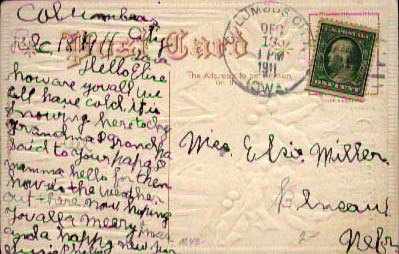 Columbus
City
Dec 18 1911 Iowa
Post Card
Hello Elsie
how are you all we
all have colds it is
snowing here today
grandma & grandpa
said to your papa &
mamma hello for them
how is the weather
out there now hoping
you all a merry xmas
and a happy new year
The Address to be written
on this
COLUMBUS CITY
DEC
PM
1911
IOWA.
Miss Elsie Miller
Nebr